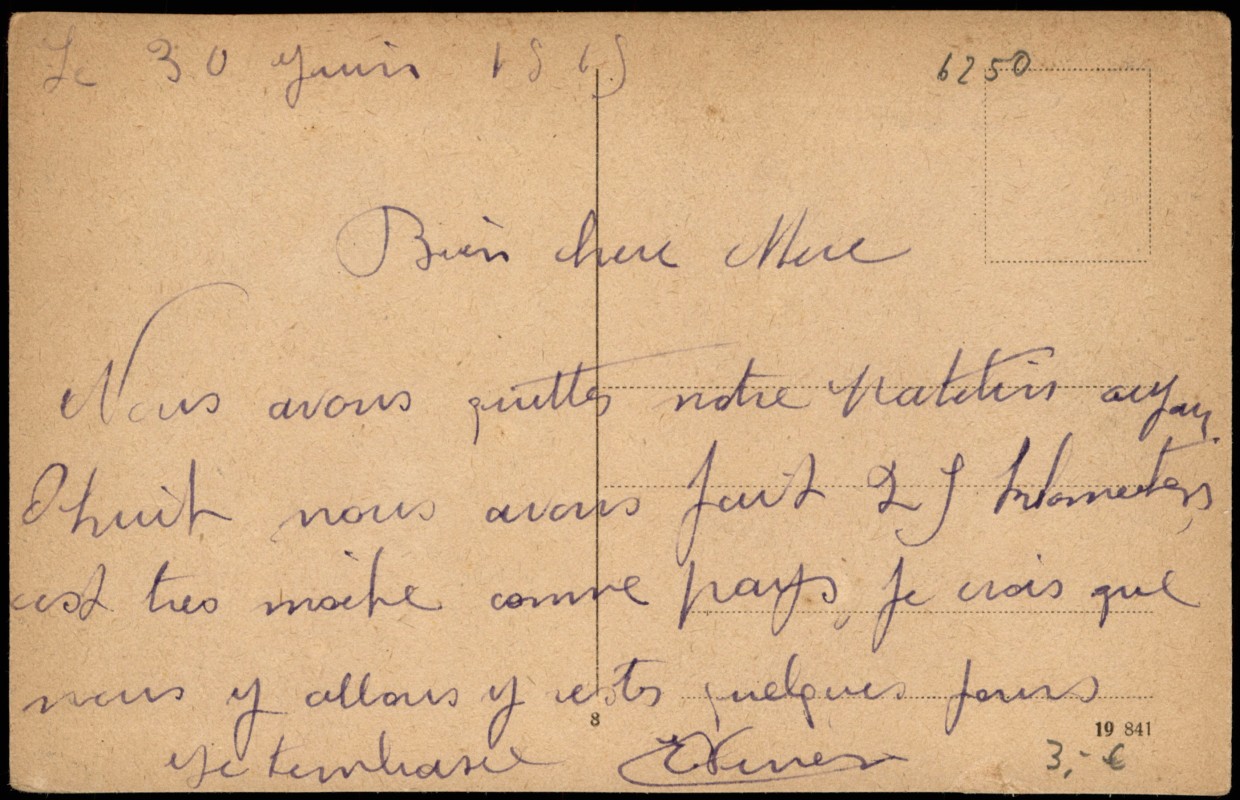 Le 30 Juin 1919
6250
Bien chere Mere
Nous avons quittes notre
Ohuit nous avons fait 25 kilometers
cest tres moche comme pays, Je crois que
nous y allons y restes quelques jours
Je tembrasse
8
19 841
3,- €